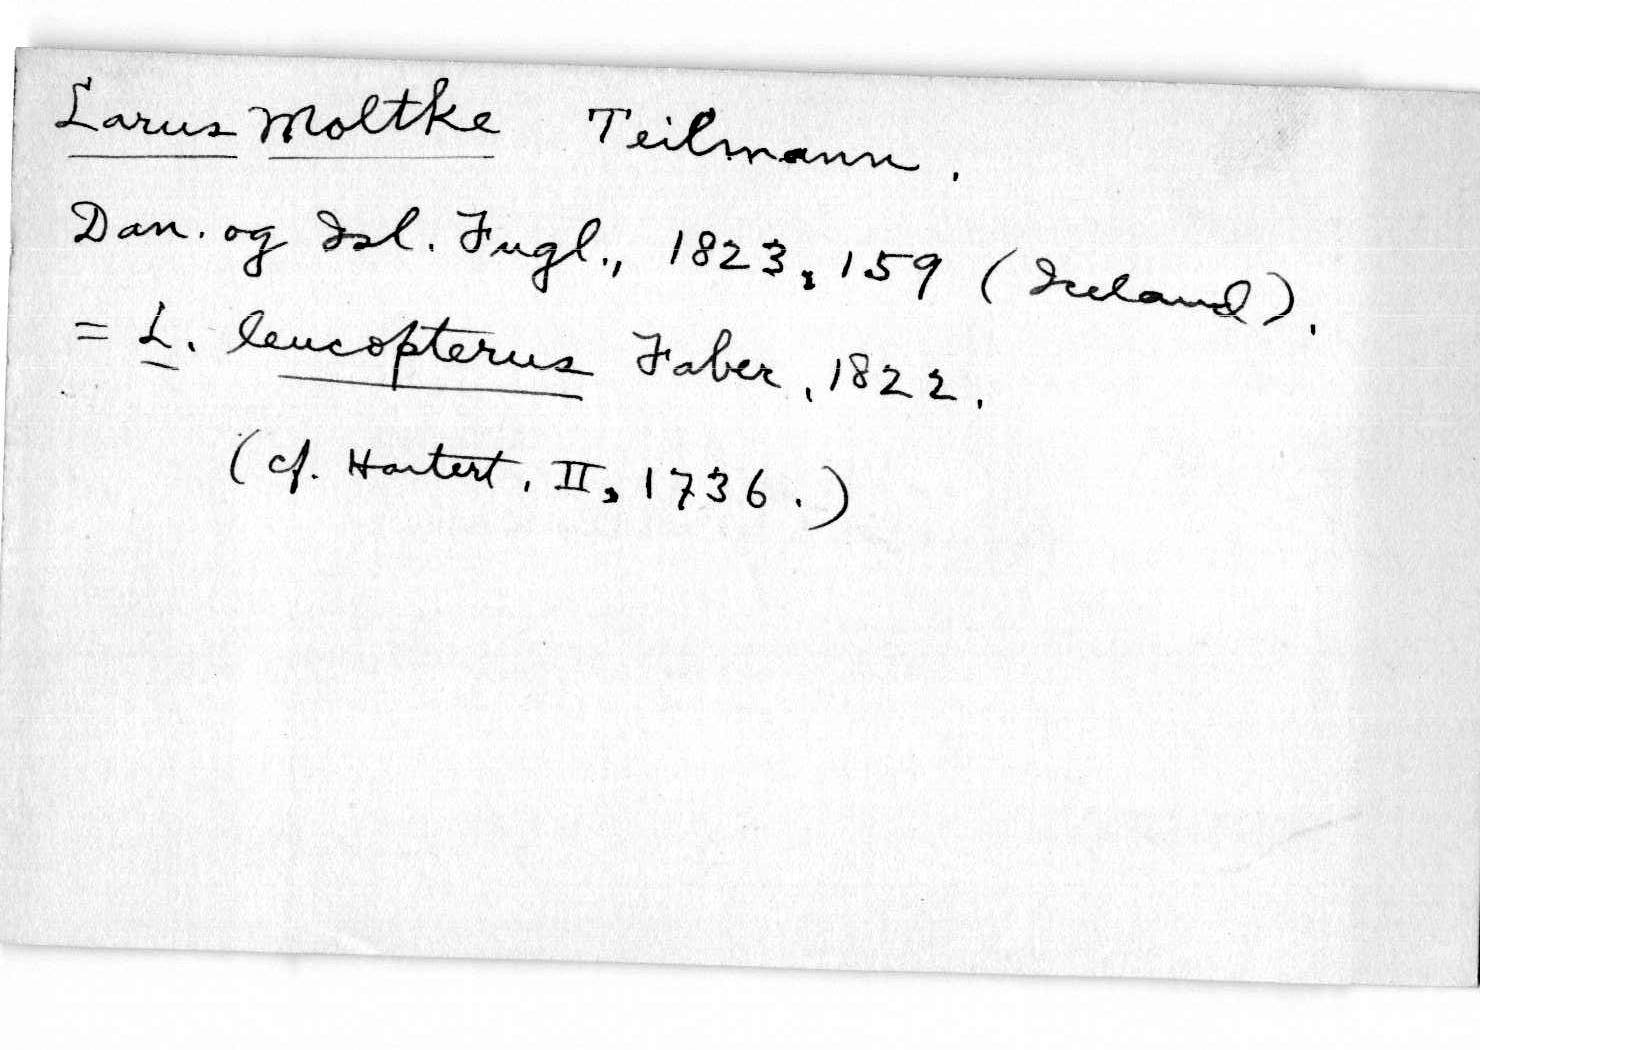 Larus Moltke Teilmann.
Dan. og Isl. Fugl., 1823, 159 (Iceland).
= L. leucopterus Faber, 1822.
(cf. Hartert, II, 1736.)